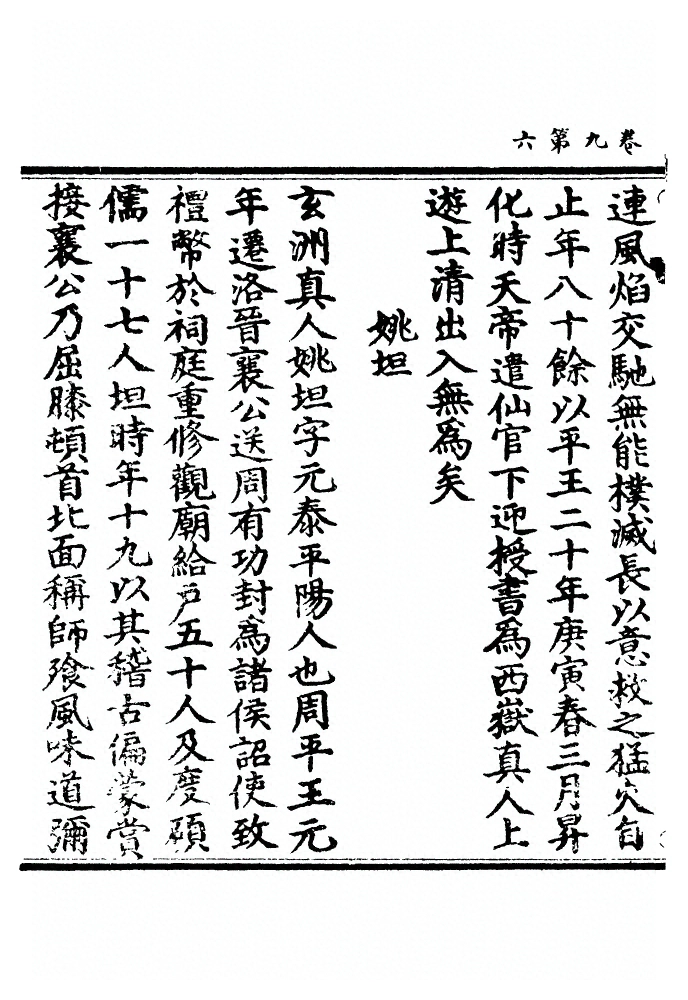 卷九第六
連風焰交馳無能樸滅長以意救之猛火自
止年八十餘以平王二十年庚寅春三月昇
化時天帝遣仙官下迎授書為西嶽真人上
遊上清出入無為矣
姚坦
玄洲真人姚坦字元泰平陽人也周平王元
年遷洛晉襄公送周有功封為諸侯詔使致
禮幣於祠庭重修觀廟給戶五十人及度碩
儒一十七人坦時年十九以其稽古偏蒙賞
接襄公乃屈膝頓首北面稱師飱風味道彌